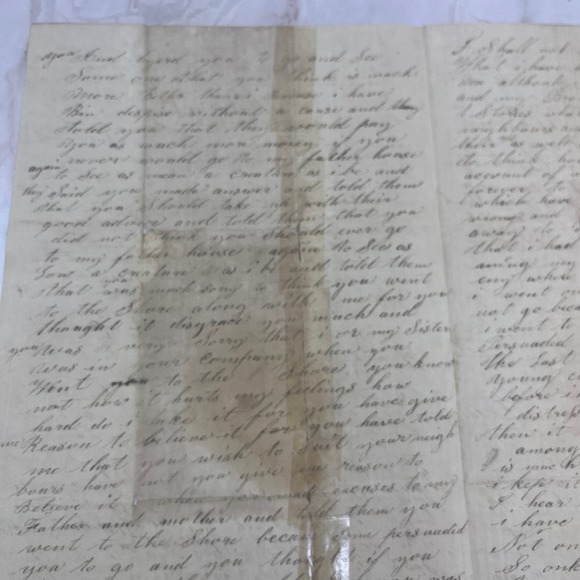 you And hired you to go and See
Some one that you think is much
More better than i because i have
Bin despise without a cause and they
told you that they would pay
you as much more money if you
never would go to my father house
again to See as mean a creature as i be and
they Said you made answer and told them
that you Should take up with their
good advice and told them that you
did not think you Should ever go
to my father house again to See as
low a creature as i be and told them
that you was much sorry to think you went
to the Shore along with me for you
thought it disgrace you much and
you Was very Sorry that or my Sister
was in your company when you
Went you to the Shore you know
not how it hurts my feelings how
hard do i take it for you have give
me Reason to believe it for you have told
me that you wish to Suit your neigh
bours have not you give me reason to
Believe it when you made excuses to my
Father and mother and told them you
went to the Shore because Some persuaded
you to go and you thought if you
I Shall not
What i have
and my
neighbours and
their as well
to think how
account of
forever to
which have
wrong and
away to
that i had
among my
eny where
i went on
not go beca
i went to
Persuaded
the Last
young
before i
distress
then it
among
is much
i kep it
I hear
i have
Not on
So onk